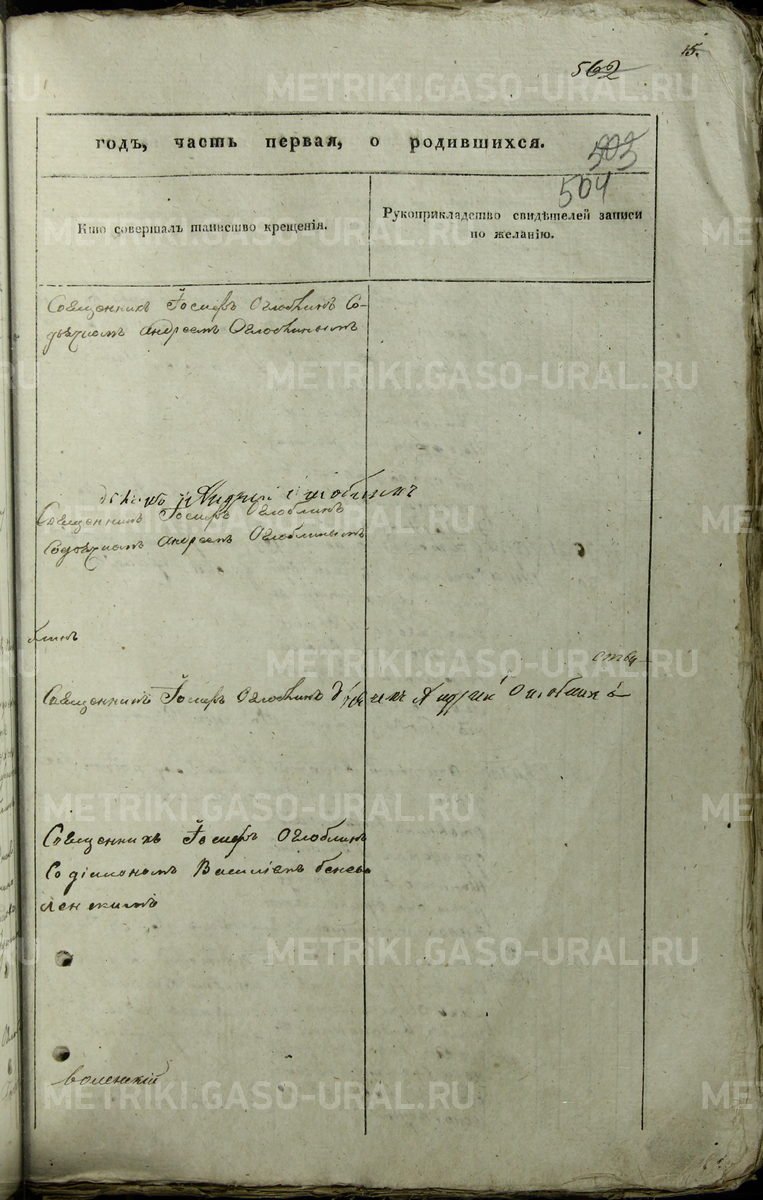 15.
562
годъ, часть первая, о родившихся.
503
504
Кто совершалъ таинство крещенія.
Рукоприкладство свидѣтелей записи
по желанію.
Священникъ Іосифъ Оглоблинъ Со-
дьячкомъ Андреемъ Оглоблинымъ
Андрей Оглоблинъ
Священникъ Іосифъ Оглоблинъ
Содьячкомъ Андреемъ Оглоблинымъ
блинъ
Священникъ Іосифъ Оглоблинъ Андрей Оглоблинъ
Священникъ Іосифъ Оглоблинъ
Со діакономъ Василіемъ Бенево
ленскимъ
воленскій
METRIKI.GASO-URAL.RU